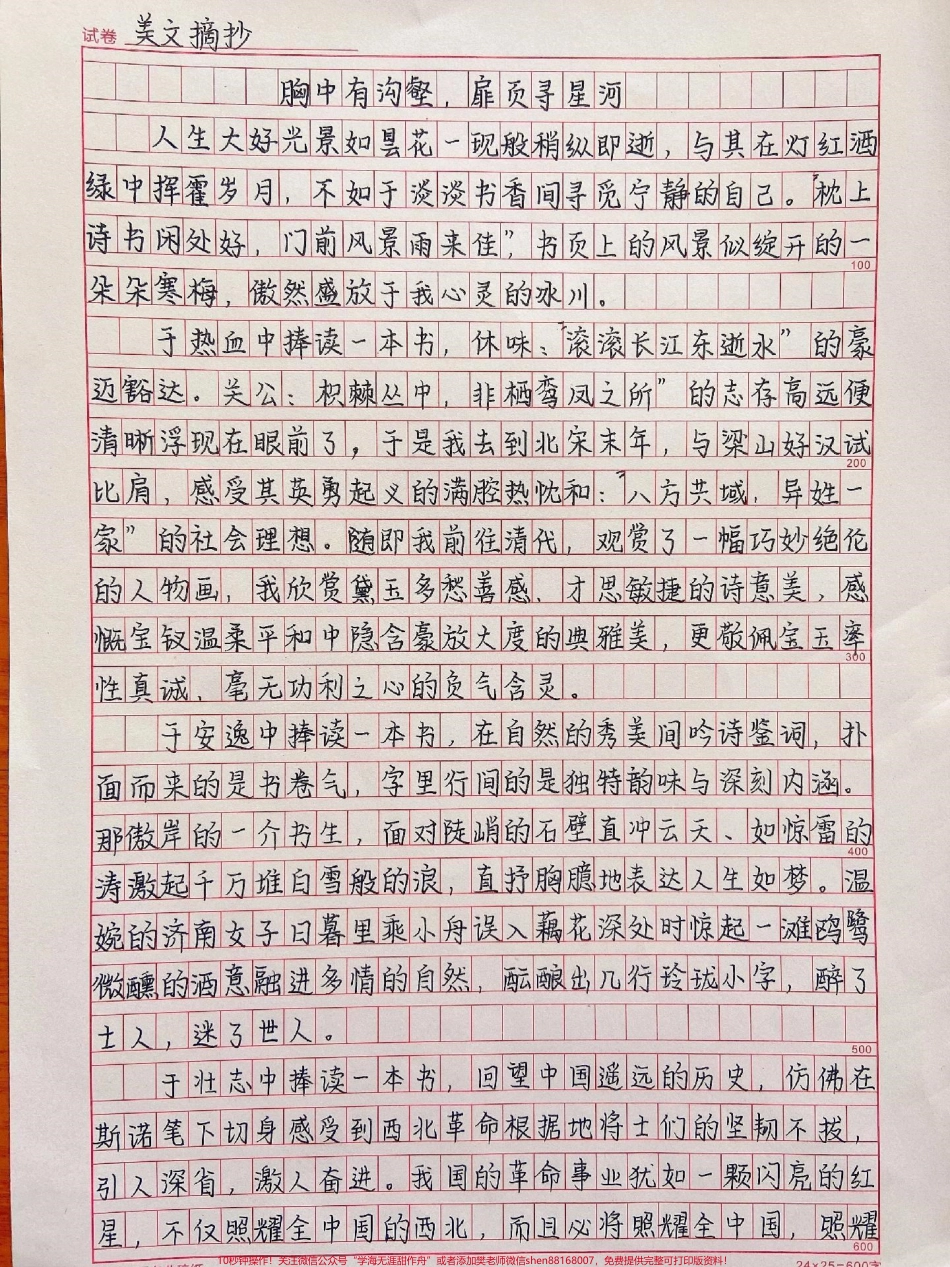 试卷 美文摘抄
胸中有沟壑，扉页寻星河
人生大好光景如昙花一现般稍纵即逝，与其在灯红酒
绿中挥霍岁月，不如于淡淡书香间寻觅宁静的自己。“枕上
诗书闲处好，门前风景雨来佳”书页上的风景似绽开的一
100
朵朵寒梅，傲然盛放于我心灵的冰川。
于热血中捧读一本书，体味：“滚滚长江东逝水”的豪
迈豁达。关公：枳棘丛中，非栖鸾凤之所”的志存高远便
清晰浮现在眼前了，于是我去到北宋末年，与梁山好汉试
200
比肩，感受其英勇起义的满腔热忱和：“八方共域，异姓一
家”的社会理想。随即我前往清代，观赏了一幅巧妙绝伦
的人物画，我欣赏黛玉多愁善感、才思敏捷的诗意美，感
慨宝钗温柔平和中隐含豪放大度的典雅美，更敬佩宝玉率
300
性真诚、毫无功利之心的负气含灵。
于安逸中捧读一本书，在自然的秀美间吟诗鉴词，扑
面而来的是书卷气，字里行间的是独特韵味与深刻内涵。
那傲岸的一介书生，面对陡峭的石壁直冲云天、如惊雷的
400
涛激起千万堆白雪般的浪，直抒胸臆地表达人生如梦。温
婉的济南女子日暮里乘小舟误入藕花深处时惊起一滩鸥鹭
微醺的酒意融进多情的自然，酝酿出几行玲珑小字，醉了
士人，迷了世人。
500
于壮志中捧读一本书，回望中国遥远的历史，仿佛在
斯诺笔下切身感受到西北革命根据地将士们的坚韧不拔，
引人深省，激人奋进。我国的革命事业犹如一颗闪亮的红
星，不仅照耀全中国的西北，而且必将照耀全中国，照耀
600
10秒钟操作！关注微信公众号“学海无涯甜作舟”或者添加樊老师微信shen88168007，免费提供完整可打印版资料！
24×25=600字